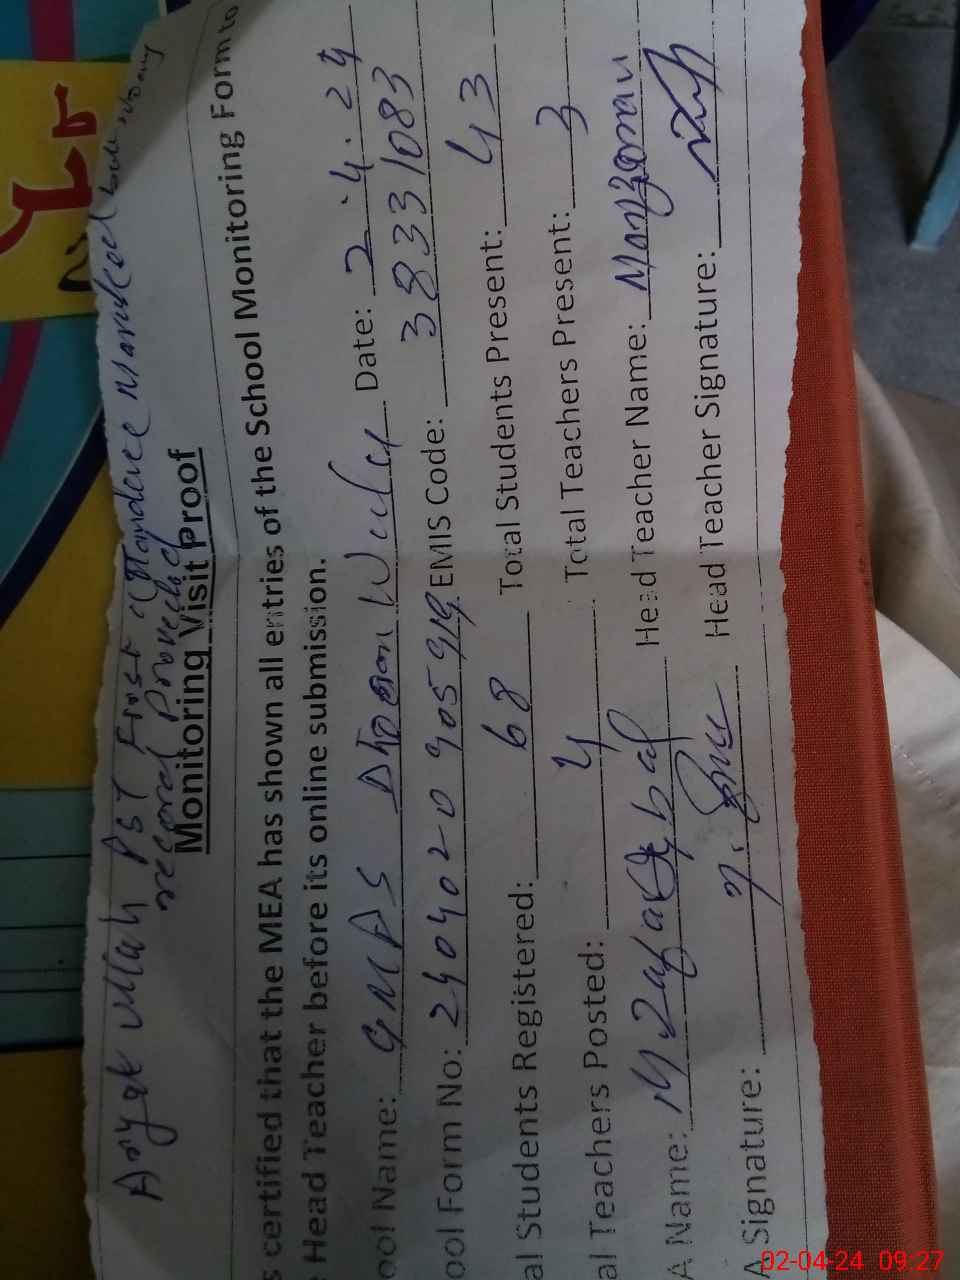 Ullah PST First attendance marked but
record Provided
Monitoring Visit Proof
s certified that the MEA has shown all entries of the School Monitoring Form to
Head Teacher before its online submission.
ool Name: GMPS Date: 2.4.24
ool Form No: 24040209059 EMIS Code: 38331083
al Students Registered: 68 Total Students Present: 43
al Teachers Posted: 4 Total Teachers Present: 3
A Name: Head Teacher Name:
A Signature: Head Teacher Signature:
02-04-24 09:27